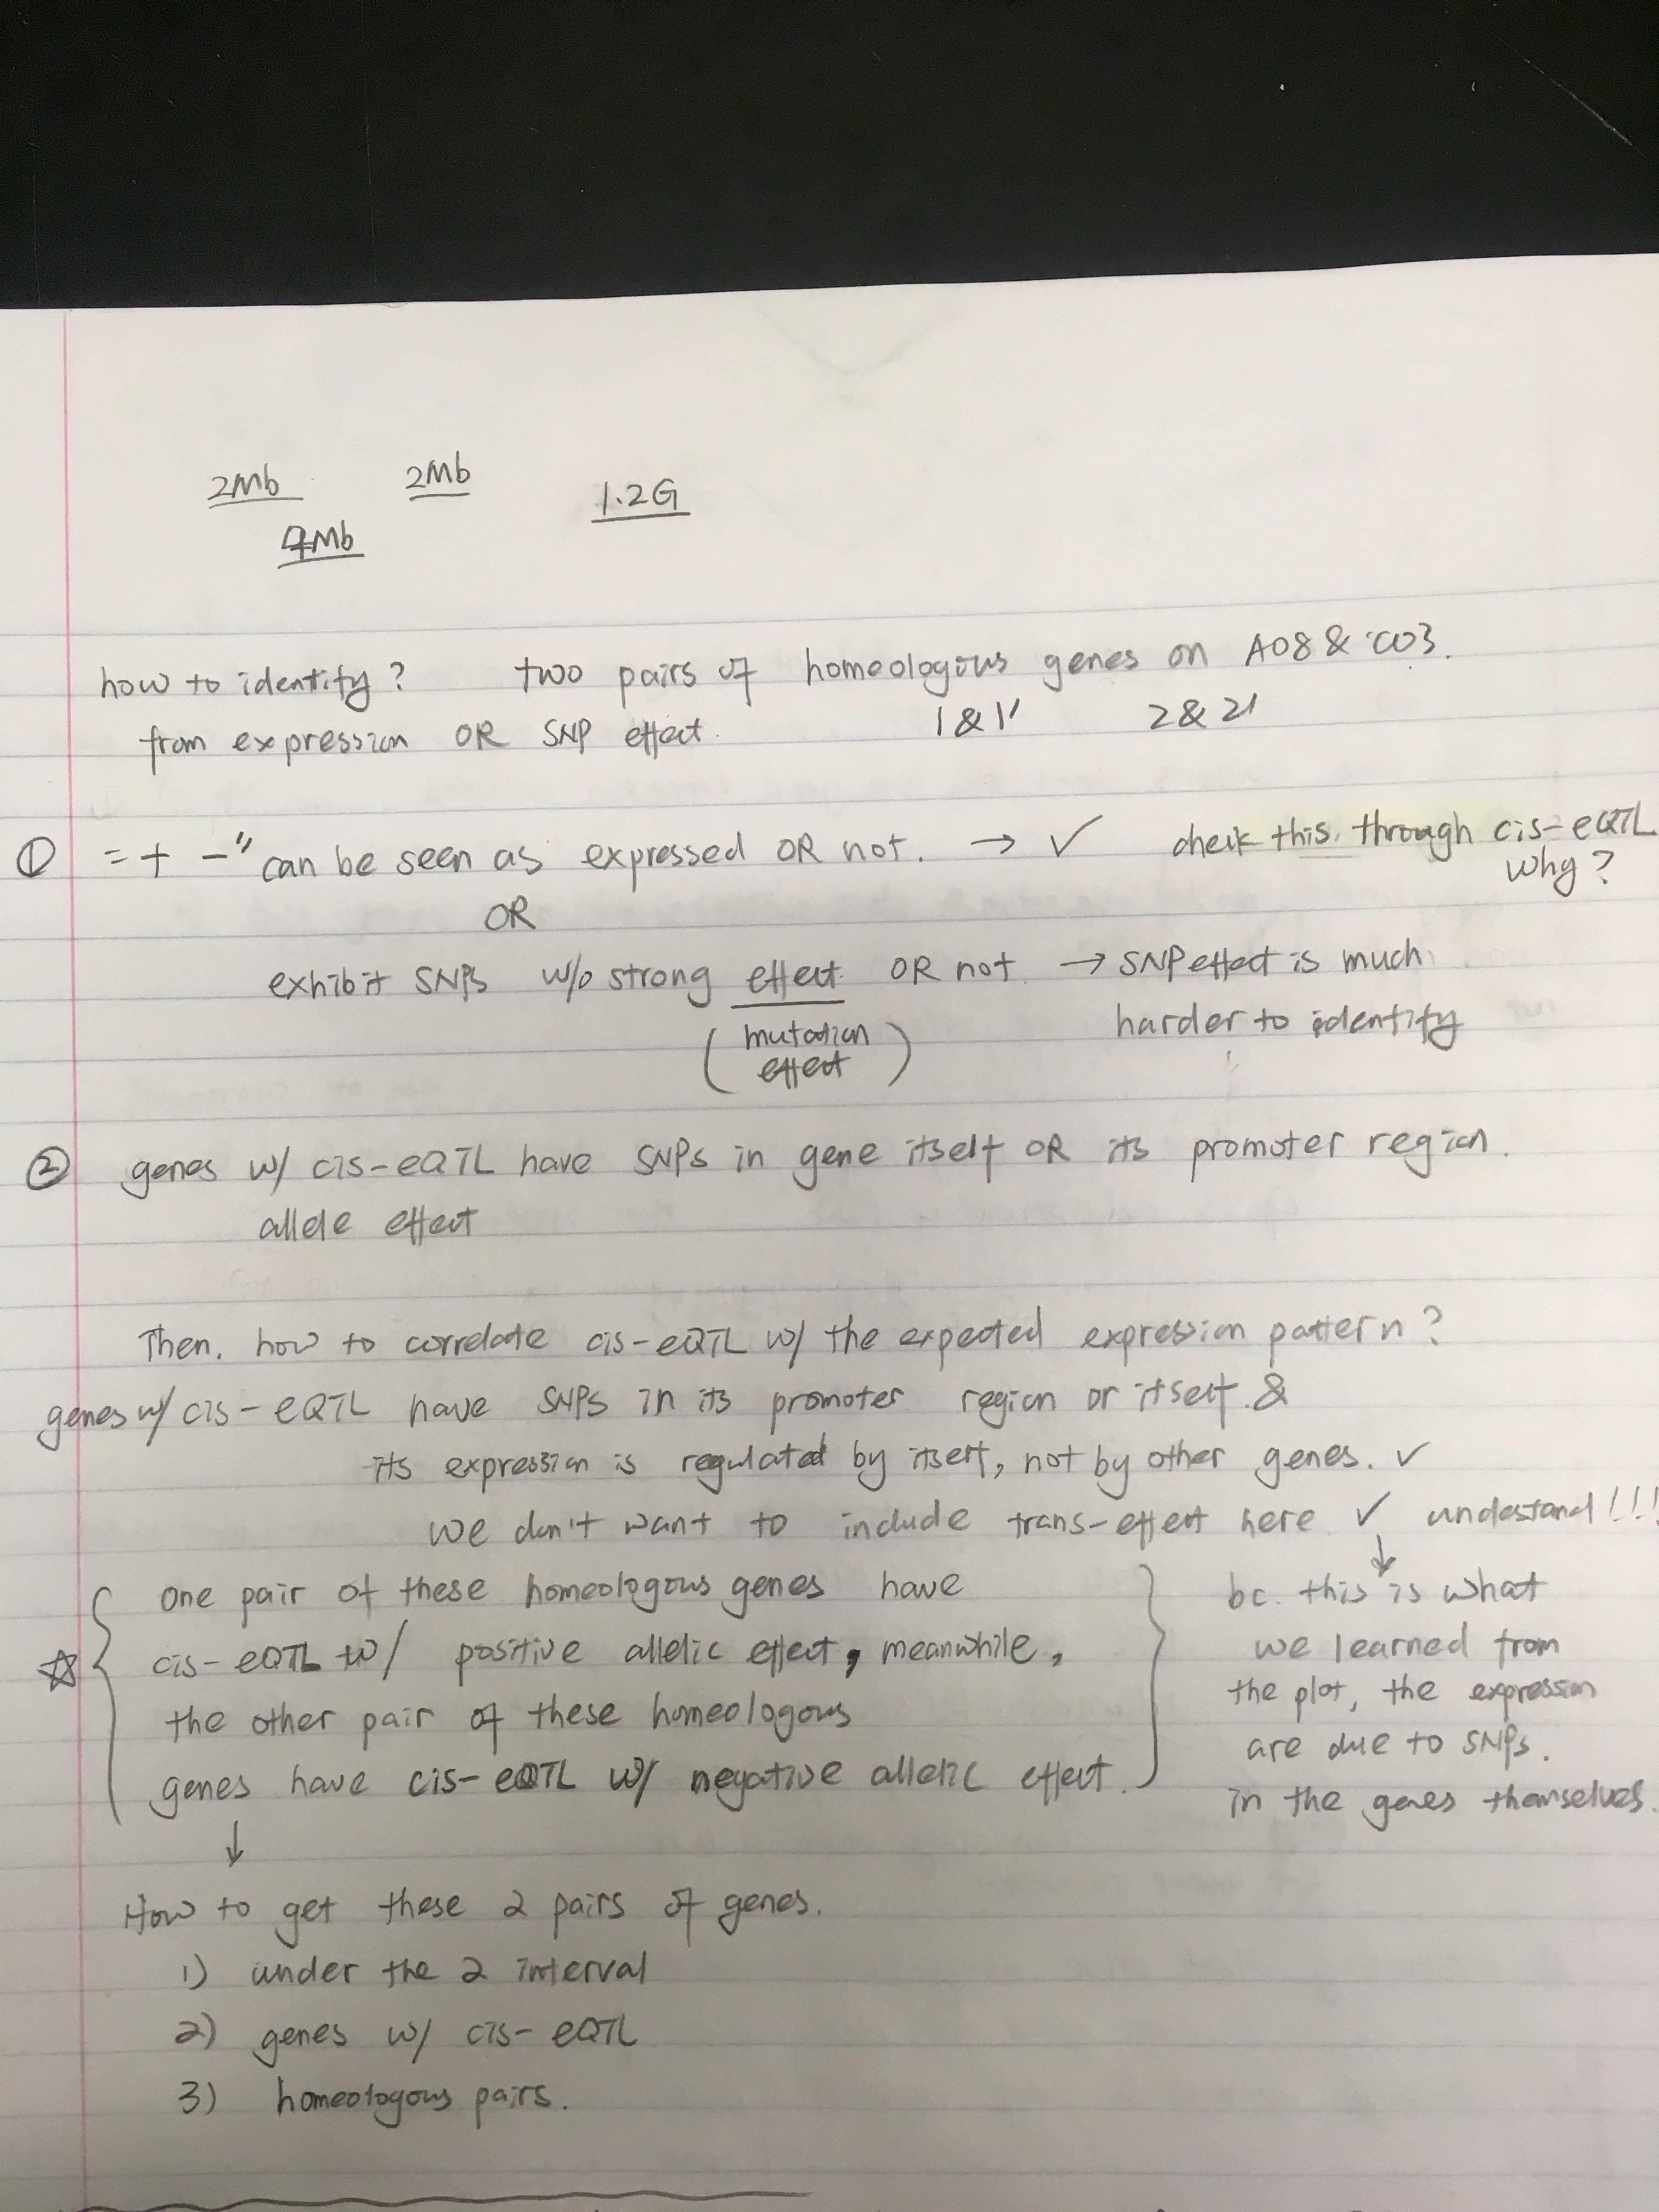 2Mb 2Mb 1.2G
4Mb
how to identify? two pairs of homeologous genes on A08 & C03.
from expression OR SNP effect. 1 & 1' 2 & 2'
① = + - " can be seen as expressed OR not. → ✓ check this. through cis-eQTL
why?
OR
exhibit SNPs w/o strong effect OR not → SNP effect is much
harder to identify
( mutation
effect )
② genes w/ cis-eQTL have SNPs in gene itself OR its promoter region.
allele effect
Then. how to correlate cis-eQTL w/ the expected expression pattern?
genes w/ cis-eQTL have SNPs in its promoter region or itself. &
its expression is regulated by itself, not by other genes. ✓
we don't want to include trans-effect here ✓ undestand!!!
☆ { one pair of these homeologous genes have
cis-eQTL w/ positive allelic effect, meanwhile,
the other pair of these homeologous
genes have cis-eQTL w/ negative allelic effect. }
↓ bc. this is what
we learned from
the plot, the expression
are due to SNPs.
in the genes themselves.
↓
How to get these 2 pairs of genes.
1) under the 2 interval
2) genes w/ cis-eQTL
3) homeologous pairs.